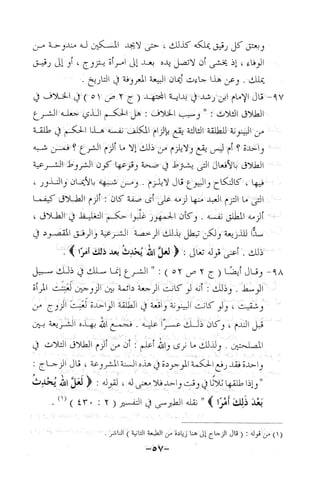 وبعتق كل رقيق يملكه كذلك ، حتى لايجد المسكين له مندوحة من
الوفاء ، إذ يخشى أن لاتصل يده بعد إلى امرأة يتزوج ، أو إلى رقيق
يملك . وعن هذا جاءت أيمان البيعة المعروفة في التاريخ .
٩٧- قال الإمام ابن رشد في بداية المجتهد ( ج ٢ ص ٥١ ) في الخلاف في
الطلاق الثلاث : " وسبب الخلاف : هل الحكم الذي جعله الشرع
من البينونة للطلقة الثالثة يقع بإلزام المكلف نفسه هذا الحكم في طلقة
واحدة ؟ أم ليس يقع ولايلزم من ذلك إلا ما ألزم الشرع ؟ فمن شبه
الطلاق بالأفعال التي يشترط في صحة وقوعها كون الشروط الشرعية
فيها ، كالنكاح والبيوع قال لايلزم . ومن شبهه بالأيمان والنذور ،
التي ما التزم العبد منها لزمه على أي صفة كان : ألزم الطلاق كيفما
ألزمه المطلق نفسه . وكأن الجمهور غلبوا حكم التغليظ في الطلاق ،
سدًّا للذريعة ولكن تبطل بذلك الرخصة الشرعية والرفق المقصود في
ذلك . أعني قوله تعالى : ﴿ لَعَلَّ الله يُحْدِثُ بعد ذلك أمْرًا ﴾ .
٩٨- وقال أيضًا ( ج ٢ ص ٥٢ ) : " الشرع إنما سلك في ذلك سبيل
الوسط . وذلك : أنه لو كانت الرجعة دائمة بين الزوجين لَعَنِتَتِ المرأة
وشقيت ، ولو كانت البينونة واقعة في الطلقة الواحدة لَعَنِتَ الزوج من
قبل الندم ، وكان ذلك عسرًا عليه . فجمع الله بهذه الشريعة بين
المصلحتين . ولذلك ما نرى والله أعلم : أن من ألزم الطلاق الثلاث في
واحدة فقد رفع الحكمة الموجودة في هذه السنة المشروعة ، قال الزجاج :
" وإذا طلقها ثلاثًا في وقت واحد فلا معنى له ، لقوله : ﴿ لَعَلَّ الله يُحْدِثُ
بَعْدَ ذَلِكَ أمْرًا ﴾ " نقله الطبرسي في التفسير ( ٢ : ٤٣٠ ) (١) .
(١) من قوله : ( قال الزجاج إلى هنا زيادة من الطبعة الثانية ) الناشر .
-٥٧-